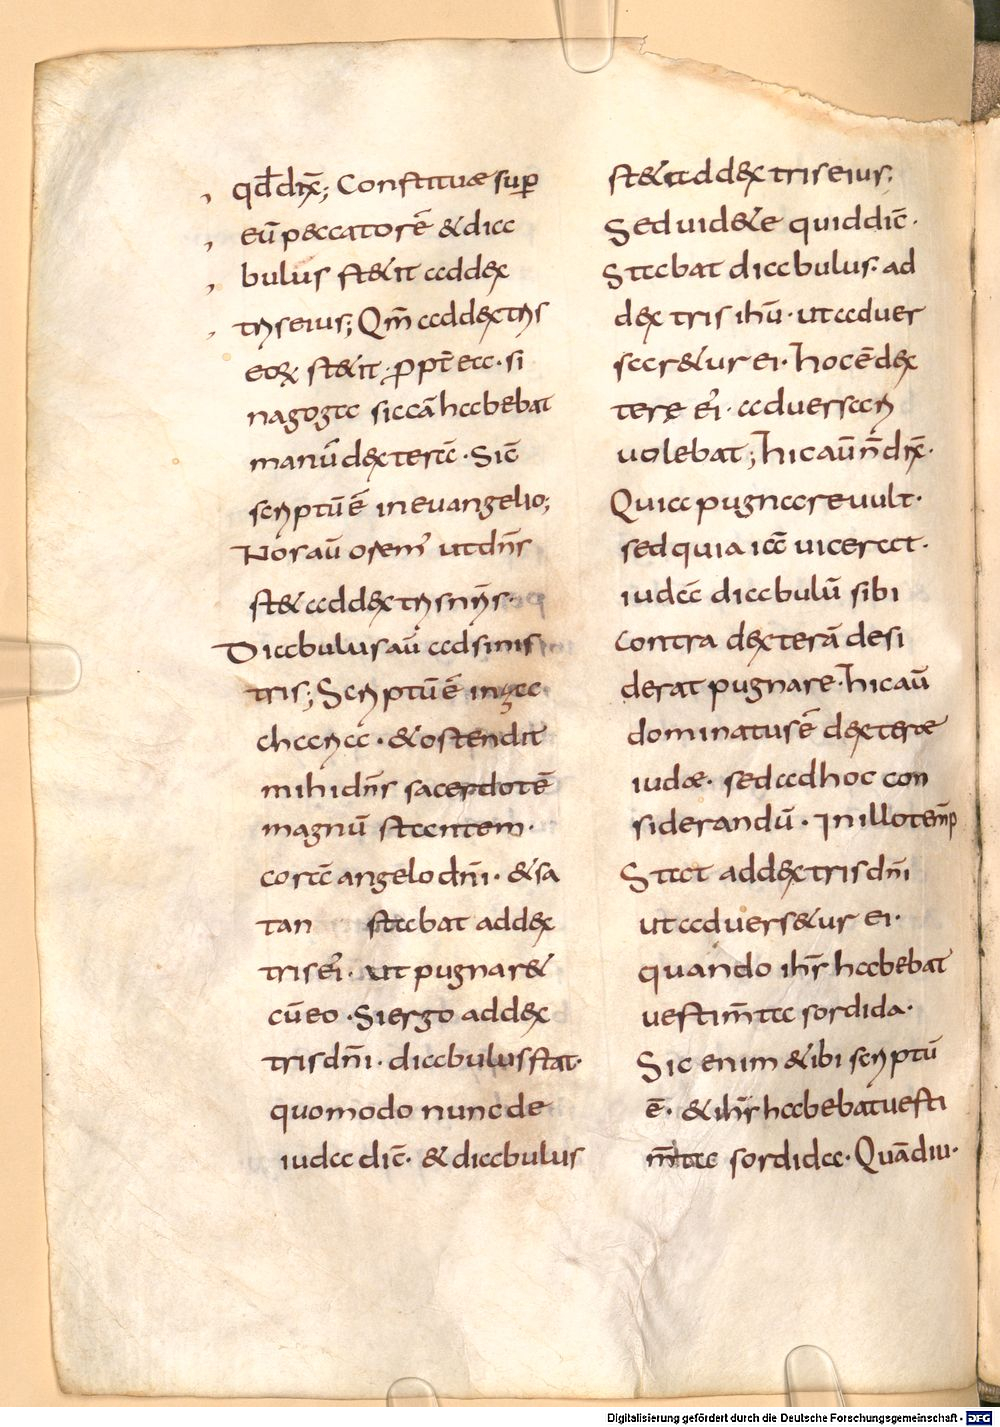 qđ dix̄; Constituae sup̄
eū peccatorē & dia
bulus st&it ad dex
tris eius; Qm̄ ad dextris
eoꝝ st&it. ꝓpt̄ ea. si
nagoga siccā habebat
manū dexterā. Sic̄
scriptū ē in evangelio;
Nos aū oremꝰ ut dn̄s
st& ad dextris nr̄is.
Diabulus aū ad sinis
tris; Scriptū ē in za
charia. & ostendit
mihi dn̄s sacerdotē
magnū stantem.
corā angelo dn̄i. & sa
tan stabat ad dex
tris ei'. ut pugnar&
cū eo. Si ergo ad dex
tris dn̄i. diabulus stat.
quomodo nunc de
iuda dic̄. & diabulus
st&it ad dextris eius;
Sed uid&e quid dic̄.
Stabat diabulus. ad
dextris ihū. ut aduer
sar&ur ei. hoc ē dex
tere ei'. aduersari
volebat; hic aū n̄ dix̄.
Quia pugnare vult.
sed quia iā uicerat.
iudā diabulū sibi
contra dexterā desi
derat pugnare. hic aū
dominatus ē dexterae
iudae. sed ad hoc con
siderandū. In illo temp̄
Stat ad dextris dn̄i
ut aduers&ur ei.
quando ih̄s habebat
vestim̄ta sordida.
Sic enim & ibi scriptū
ē. & ih̄s habebat vesti
m̄ta sordida. Quādiu.
Digitalisierung gefördert durch die Deutsche Forschungsgemeinschaft - DFG